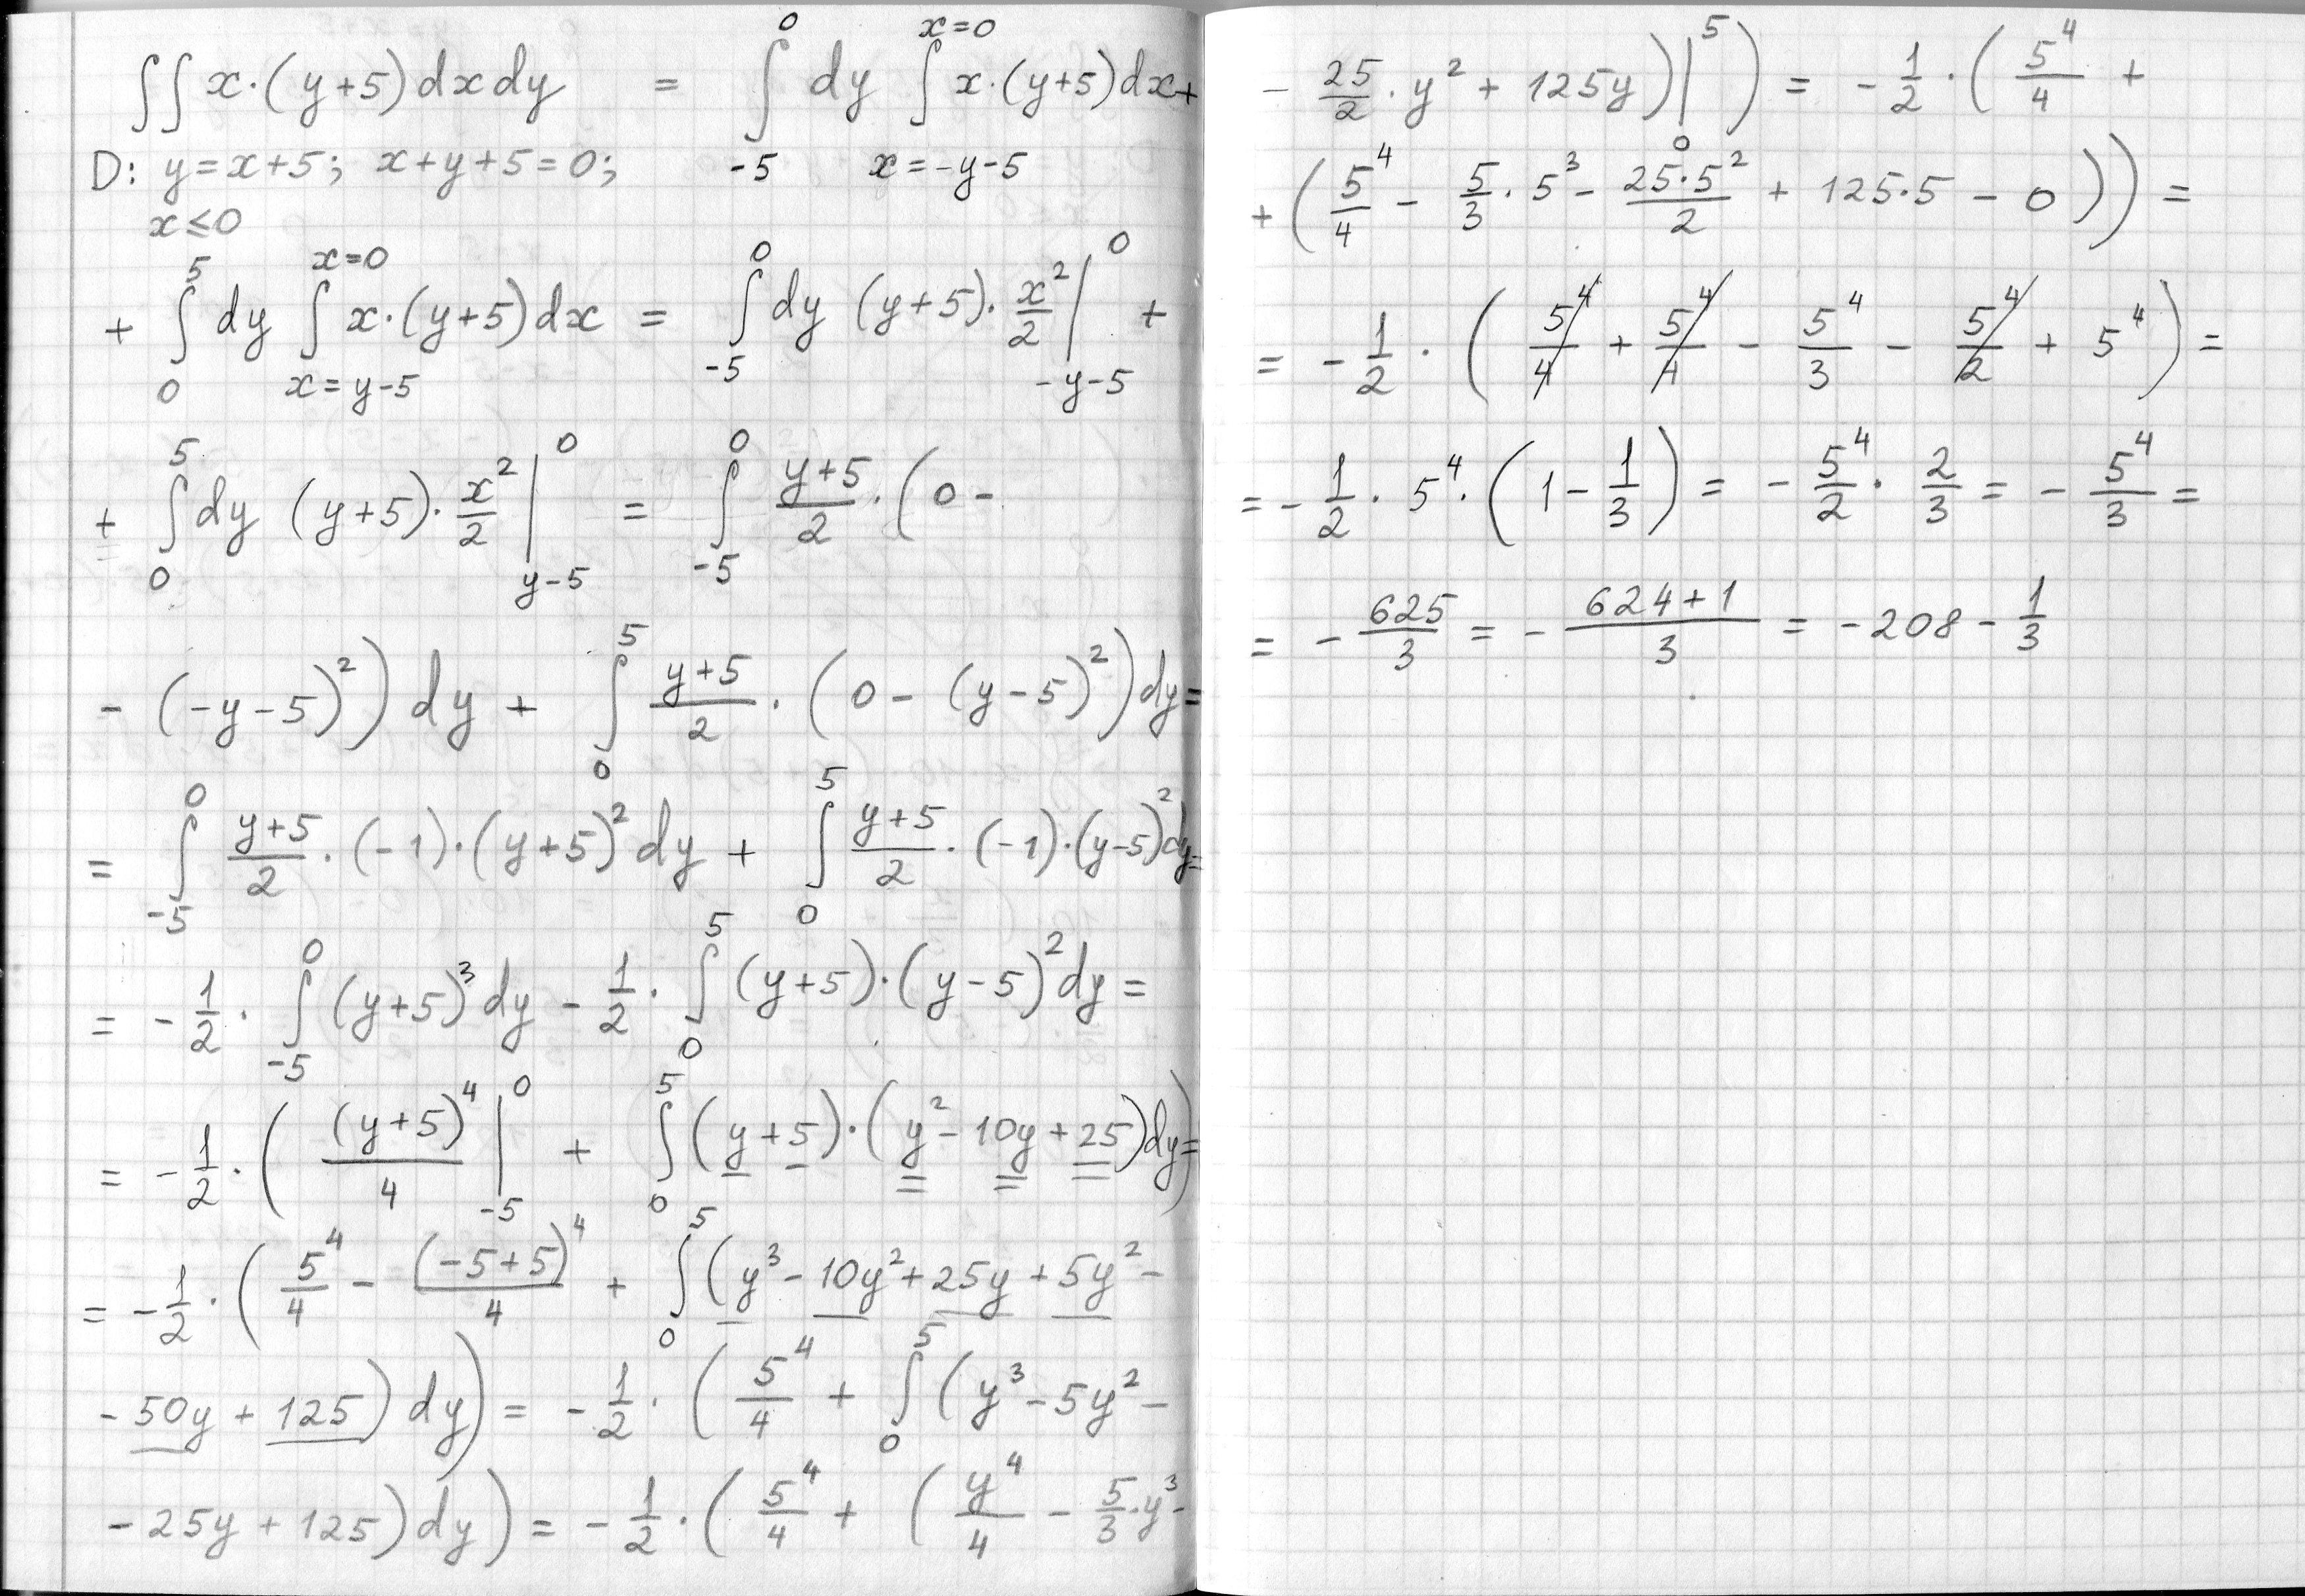 ∫∫ x·(y+5)dxdy = ∫_{-5}^{0} dy ∫_{x=-y-5}^{x=0} x·(y+5)dx+
D: y=x+5; x+y+5=0;
x≤0
+ ∫_{0}^{5} dy ∫_{x=y-5}^{x=0} x·(y+5)dx = ∫_{-5}^{0} dy (y+5)·x²/2 |_{-y-5}^{0} +
+ ∫_{0}^{5} dy (y+5)·x²/2 |_{y-5}^{0} = ∫_{-5}^{0} (y+5)/2·(0-
-(-y-5)²)dy + ∫_{0}^{5} (y+5)/2·(0-(y-5)²)dy=
= ∫_{-5}^{0} (y+5)/2·(-1)·(y+5)²dy + ∫_{0}^{5} (y+5)/2·(-1)·(y-5)²dy=
= -1/2·∫_{-5}^{0} (y+5)³dy - 1/2·∫_{0}^{5} (y+5)·(y-5)²dy=
= -1/2·( (y+5)⁴/4 |_{-5}^{0} + ∫_{0}^{5} (y+5)·(y²-10y+25)dy)=
= -1/2·( 5⁴/4 - (-5+5)⁴/4 + ∫_{0}^{5} (y³-10y²+25y+5y²-
-50y+125)dy) = -1/2·( 5⁴/4 + ∫_{0}^{5} (y³-5y²-
-25y+125)dy) = -1/2·( 5⁴/4 + ( y⁴/4 - 5/3·y³-
- 25/2·y²+125y)|_{0}^{5} ) = -1/2·( 5⁴/4 +
+( 5⁴/4 - 5/3·5³ - 25·5²/2 + 125·5 - 0)) =
= -1/2·( 5⁴/4 + 5⁴/4 - 5⁴/3 - 5⁴/2 + 5⁴) =
= -1/2·5⁴·(1-1/3) = -5⁴/2·2/3 = -5⁴/3 =
= -625/3 = -(624+1)/3 = -208-1/3